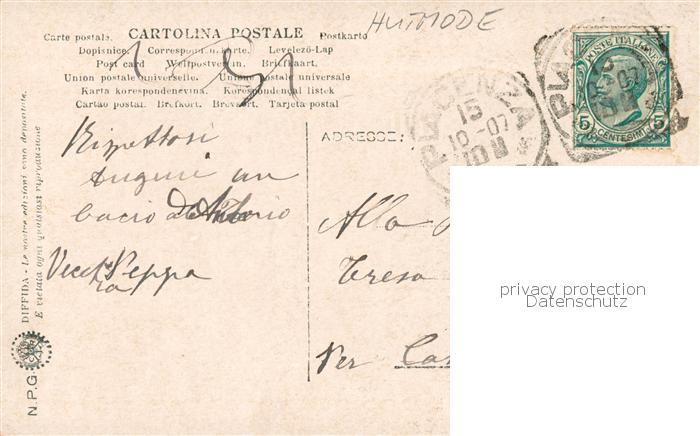 HUTMODE
Carte postale. CARTOLINA POSTALE Postkarto
Dopisnice. Correspondenzkarte. Levelező-Lap
Post card Weltpostverein. Briefkaart.
Union postale universelle. Unione postale universale
Karta korespondencyina. Korespondencni listek
Cartão postal. Brefkort. Brevkort. Tarjeta postal
POSTE ITALIANE
5 CENTESIMI 5
PIACENZA
15
10-07
ADRESSE:
Rispettosi
auguri un
bacio
Vecchia Peppa
Alla
Teresa
Per
privacy protection
Datenschutz
DIFFIDA - Le nostre edizioni sono depositate.
E vietata ogni qualsiasi riproduzione
N.P.G.